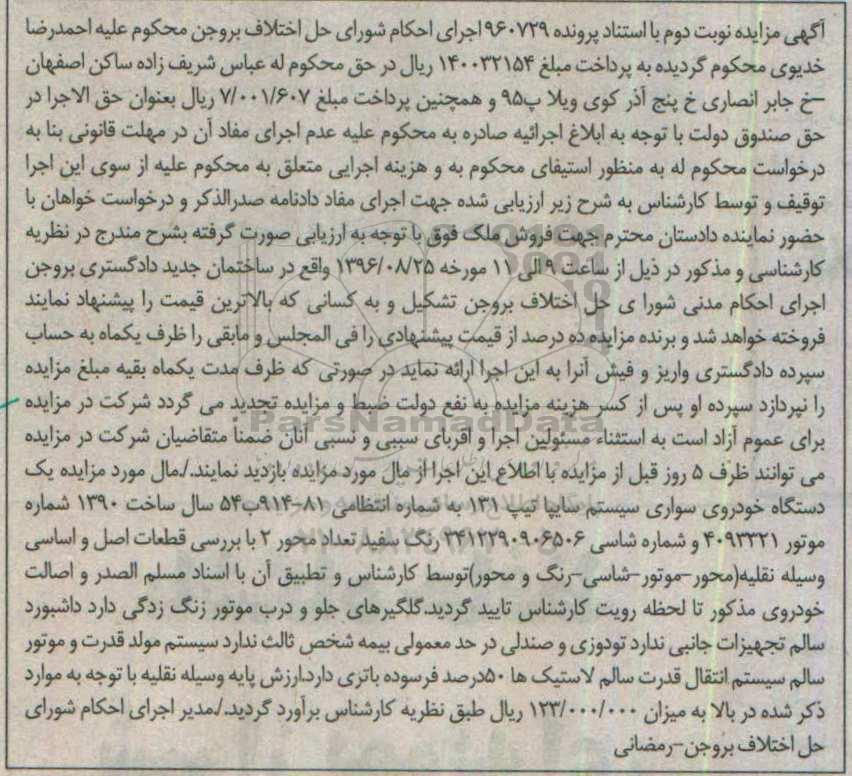 آگهی مزایده نوبت دوم با استناد پرونده ۹۶۰۷۲۹ اجرای احکام شورای حل اختلاف بروجن محکوم علیه احمدرضا
خدیوی محکوم گردیده به پرداخت مبلغ ۱۴۰۰۳۲۱۵۴ ریال در حق محکوم له عباس شریف زاده ساکن اصفهان
–خ جابر انصاری خ پنج آذر کوی ویلا پ۹۵ و همچنین پرداخت مبلغ ۷/۰۰۱/۶۰۷ ریال بعنوان حق الاجرا در
حق صندوق دولت با توجه به ابلاغ اجرائیه صادره به محکوم علیه عدم اجرای مفاد آن در مهلت قانونی بنا به
درخواست محکوم له به منظور استیفای محکوم به و هزینه اجرایی متعلق به محکوم علیه از سوی این اجرا
توقیف و توسط کارشناس به شرح زیر ارزیابی شده جهت اجرای مفاد دادنامه صدرالذکر و درخواست خواهان با
حضور نماینده دادستان محترم جهت فروش ملک فوق با توجه به ارزیابی صورت گرفته بشرح مندرج در نظریه
کارشناسی و مذکور در ذیل از ساعت ۹ الی ۱۱ مورخه ۱۳۹۶/۰۸/۲۵ واقع در ساختمان جدید دادگستری بروجن
اجرای احکام مدنی شورا ی حل اختلاف بروجن تشکیل و به کسانی که بالاترین قیمت را پیشنهاد نمایند
فروخته خواهد شد و برنده مزایده ده درصد از قیمت پیشنهادی را فی المجلس و مابقی را ظرف یکماه به حساب
سپرده دادگستری واریز و فیش آنرا به این اجرا ارائه نماید در صورتی که ظرف مدت یکماه بقیه مبلغ مزایده
را نپردازد سپرده او پس از کسر هزینه مزایده به نفع دولت ضبط و مزایده تجدید می گردد شرکت در مزایده
برای عموم آزاد است به استثناء مسئولین اجرا و اقربای سببی و نسبی آنان ضمنا متقاضیان شرکت در مزایده
می توانند ظرف ۵ روز قبل از مزایده با اطلاع این اجرا از مال مورد مزایده بازدید نمایند./.مال مورد مزایده یک
دستگاه خودروی سواری سیستم سایپا تیپ ۱۳۱ به شماره انتظامی ۸۱–۹۱۴ب۵۴ سال ساخت ۱۳۹۰ شماره
موتور ۴۰۹۳۳۲۱ و شماره شاسی ۳۴۱۲۲۹۰۹۰۶۵۰۶ رنگ سفید تعداد محور ۲ با بررسی قطعات اصل و اساسی
وسیله نقلیه(محور–موتور–شاسی–رنگ و محور)توسط کارشناس و تطبیق آن با اسناد مسلم الصدر و اصالت
خودروی مذکور تا لحظه رویت کارشناس تایید گردید.گلگیرهای جلو و درب موتور زنگ زدگی دارد داشبورد
سالم تجهیزات جانبی ندارد تودوزی و صندلی در حد معمولی بیمه شخص ثالث ندارد سیستم مولد قدرت و موتور
سالم سیستم انتقال قدرت سالم لاستیک ها ۵۰درصد فرسوده باتری دارد.ارزش پایه وسیله نقلیه با توجه به موارد
ذکر شده در بالا به میزان ۱۲۳/۰۰۰/۰۰۰ ریال طبق نظریه کارشناس برآورد گردید./.مدیر اجرای احکام شورای
حل اختلاف بروجن–رمضانی
ParsNamadData